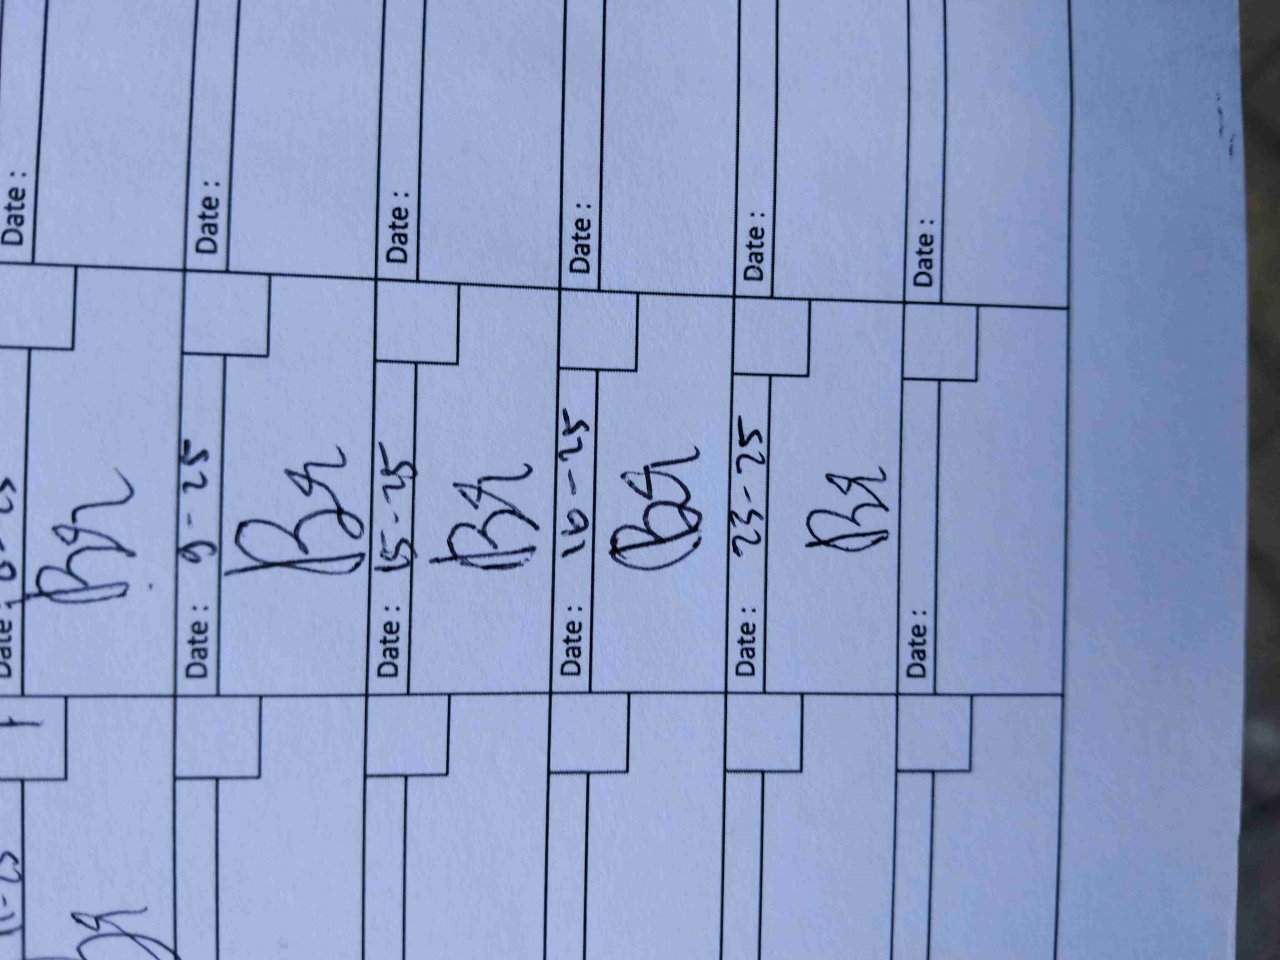 Date :
Date :
Date :
Date :
Date :
Date :
Date :
Date : 9 - 25
Date : 15 - 25
Date : 16 - 25
Date : 23 - 25
Date :